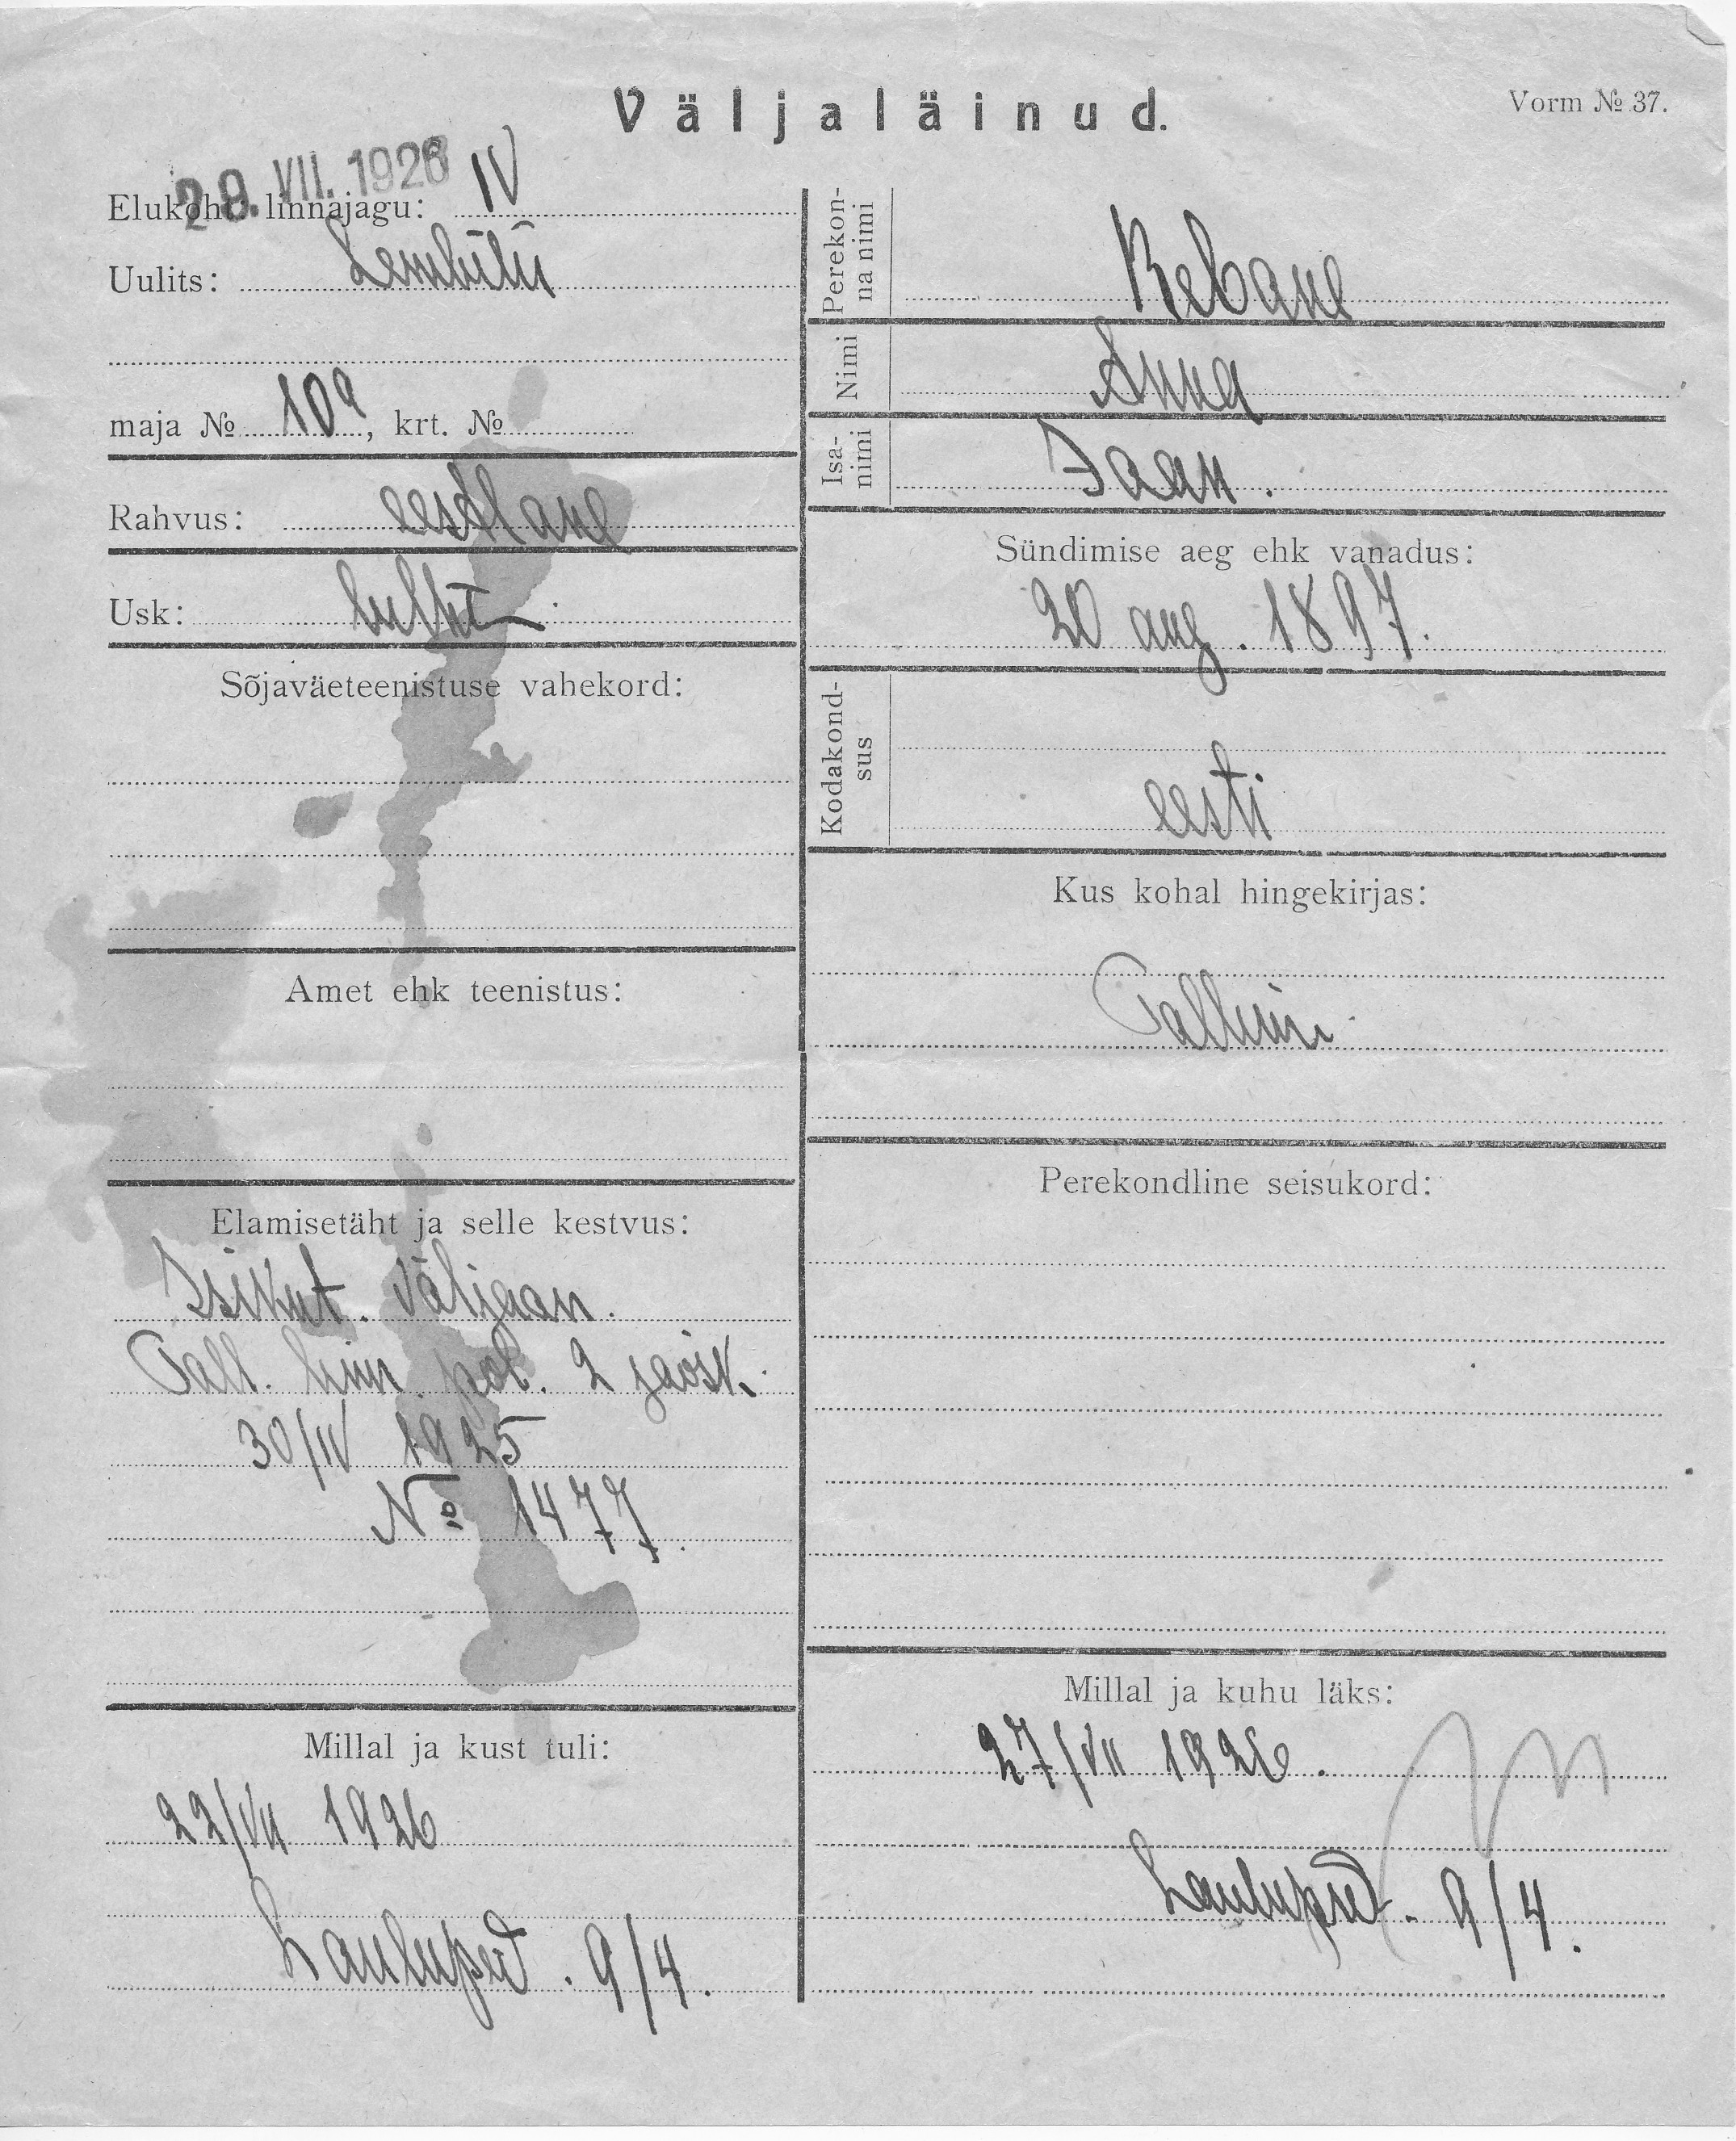 Väljaläinud.
Vorm № 37.
29. VII. 1926
Elukoht linnajagu: IV
Uulits: Lembitu
maja № 10a, krt. №
Rahvus: eestlane
Usk:
Sõjaväeteenistuse vahekord:
Amet ehk teenistus:
Elamisetäht ja selle kestvus:
Isikut. väljaan.
Tall. linn. pol. 2 jaosk.
30/IV 1925
№ 1477.
Millal ja kust tuli:
22/VII 1926
Laulupeo. 9/4.
Perekonna nimi
Rebane
Nimi
Anna
Isanimi
Jaan.
Sündimise aeg ehk vanadus:
20 aug. 1897.
Kodakondsus
eesti
Kus kohal hingekirjas:
Tallinn
Perekondline seisukord:
Millal ja kuhu läks:
27/VII 1926.
Laulupeo. 9/4.